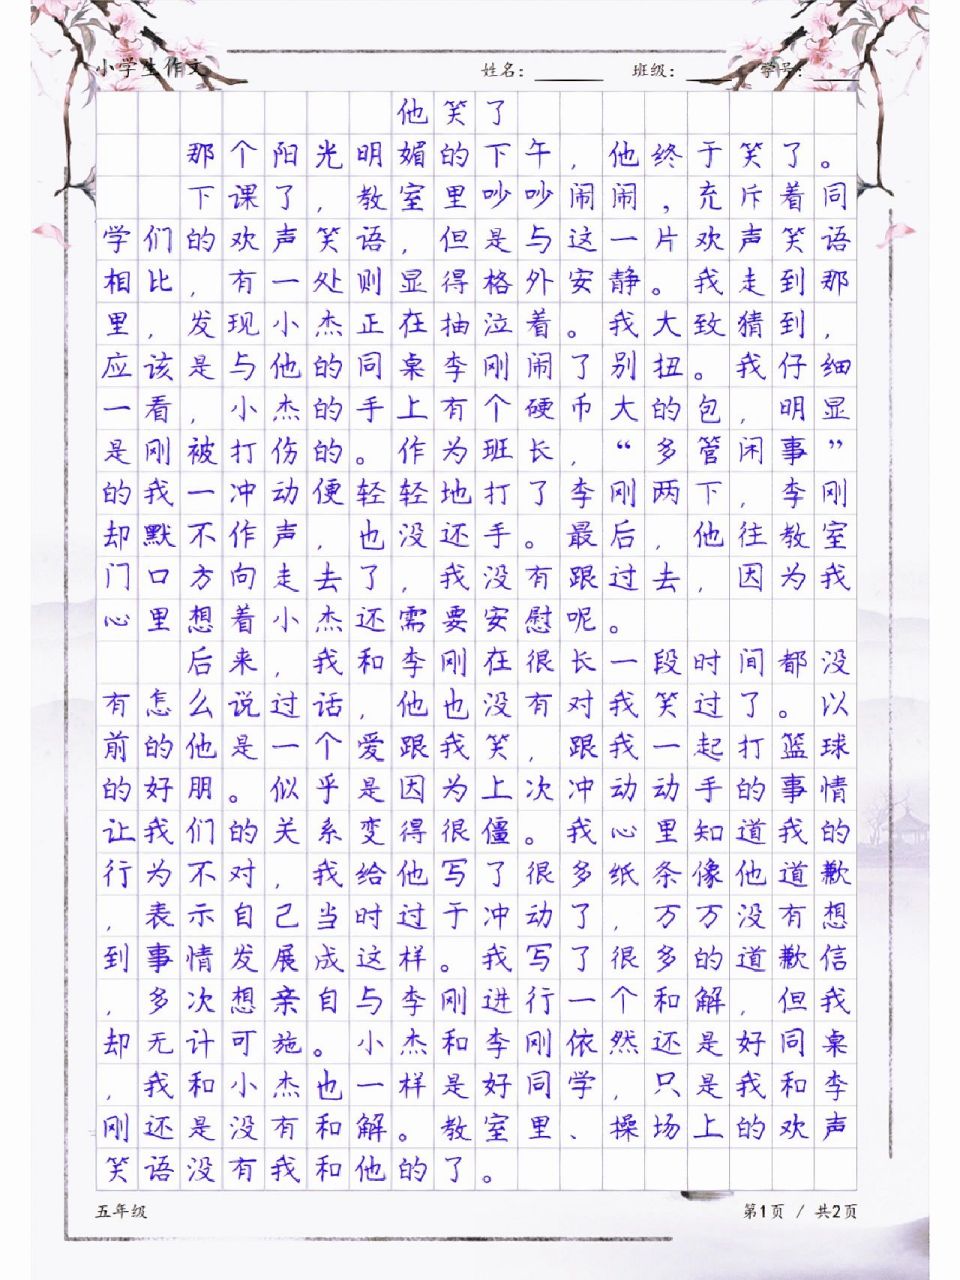 小学生作文 姓名：______ 班级：____ 学号：____
他笑了
那个阳光明媚的下午，他终于笑了。
下课了，教室里吵吵闹闹，充斥着同
学们的欢声笑语，但是与这一片欢声笑语
相比，有一处则显得格外安静。我走到那
里，发现小杰正在抽泣着。我大致猜到，
应该是与他的同桌李刚闹了别扭。我仔细
一看，小杰的手上有个硬币大的包，明显
是刚被打伤的。作为班长，“多管闲事”
的我一冲动便轻轻地打了李刚两下，李刚
却默不作声，也没还手。最后，他往教室
门口方向走去了，我没有跟过去，因为我
心里想着小杰还需要安慰呢。
后来，我和李刚在很长一段时间都没
有怎么说过话，他也没有对我笑过了。以
前的他是一个爱跟我笑，跟我一起打篮球
的好朋。似乎是因为上次冲动动手的事情
让我们的关系变得很僵。我心里知道我的
行为不对，我给他写了很多纸条像他道歉
，表示自己当时过于冲动了，万万没有想
到事情发展成这样。我写了很多的道歉信
，多次想亲自与李刚进行一个和解，但我
却无计可施。小杰和李刚依然还是好同桌
，我和小杰也一样是好同学，只是我和李
刚还是没有和解。教室里、操场上的欢声
笑语没有我和他的了。
五年级 第1页 / 共2页